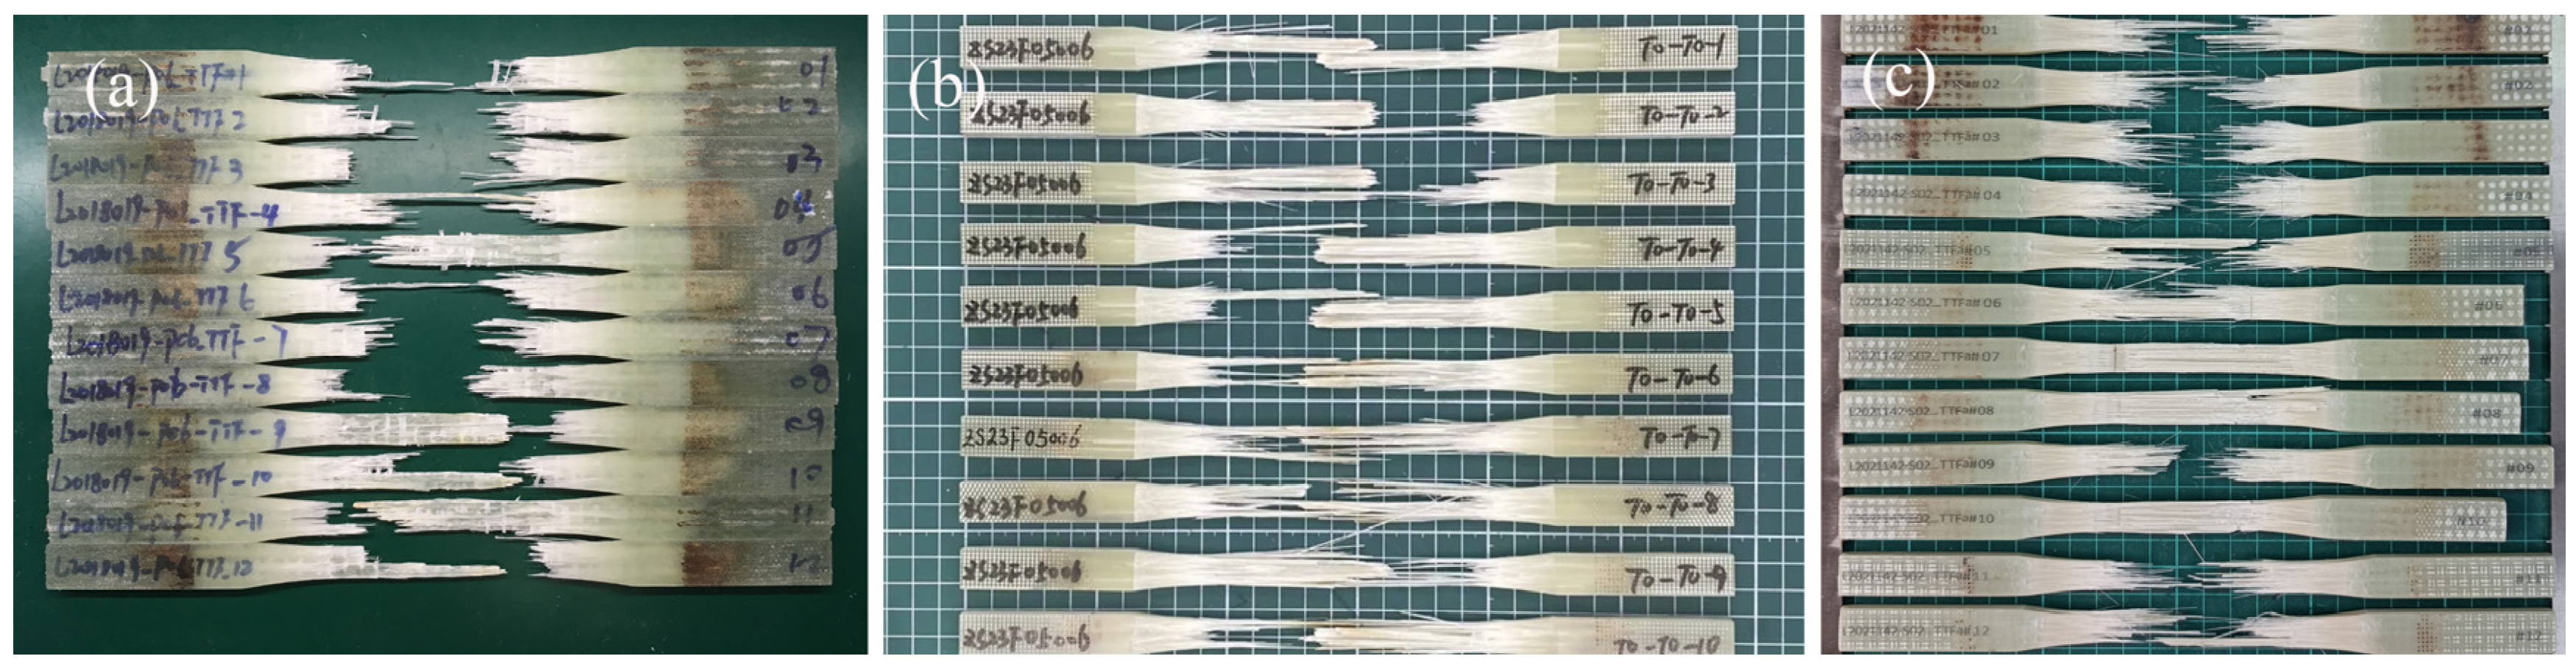 (a)
L2018019-P06_TTF#1 01
L2018019-P06_TTF 2 02
L2018019-P06_TTF 3 03
L2018019-P06_TTF-4 04
L2018019-P06_TTF 5 05
L2018019-P06_TTF 6 06
L2018019-P06_TTF-7 07
L2018019-P06-TTF-8 08
L2018019-P06-TTF-9 09
L2018019-P06-TTF-10 10
L2018019-P06_TTF-11 11
L2018019-P06_TTF_12 12
(b)
ZS23F05006 T0-T0-1
ZS23F05006 T0-T0-2
ZS23F05006 T0-T0-3
ZS23F05006 T0-T0-4
ZS23F05006 T0-T0-5
ZS23F05006 T0-T0-6
ZS23F05006 T0-T0-7
ZS23F05006 T0-T0-8
ZS23F05006 T0-T0-9
ZS23F05006 T0-T0-10
(c)
L2021142-S02_TTFa#01
TTFa#02 #02
L2021142-S02_TTFa#03
L2021142-S02_TTFa#04 #04
L2021142-S02_TTFa#05 #05
L2021142-S02_TTFa#06 #06
L2021142-S02_TTFa#07 #07
L2021142-S02_TTFa#08 #08
L2021142-S02_TTFa#09 #09
S02_TTFa#10 #10
L2021142-S02_TTFa#11 #11
L2021142-S02_TTFa#12 #12